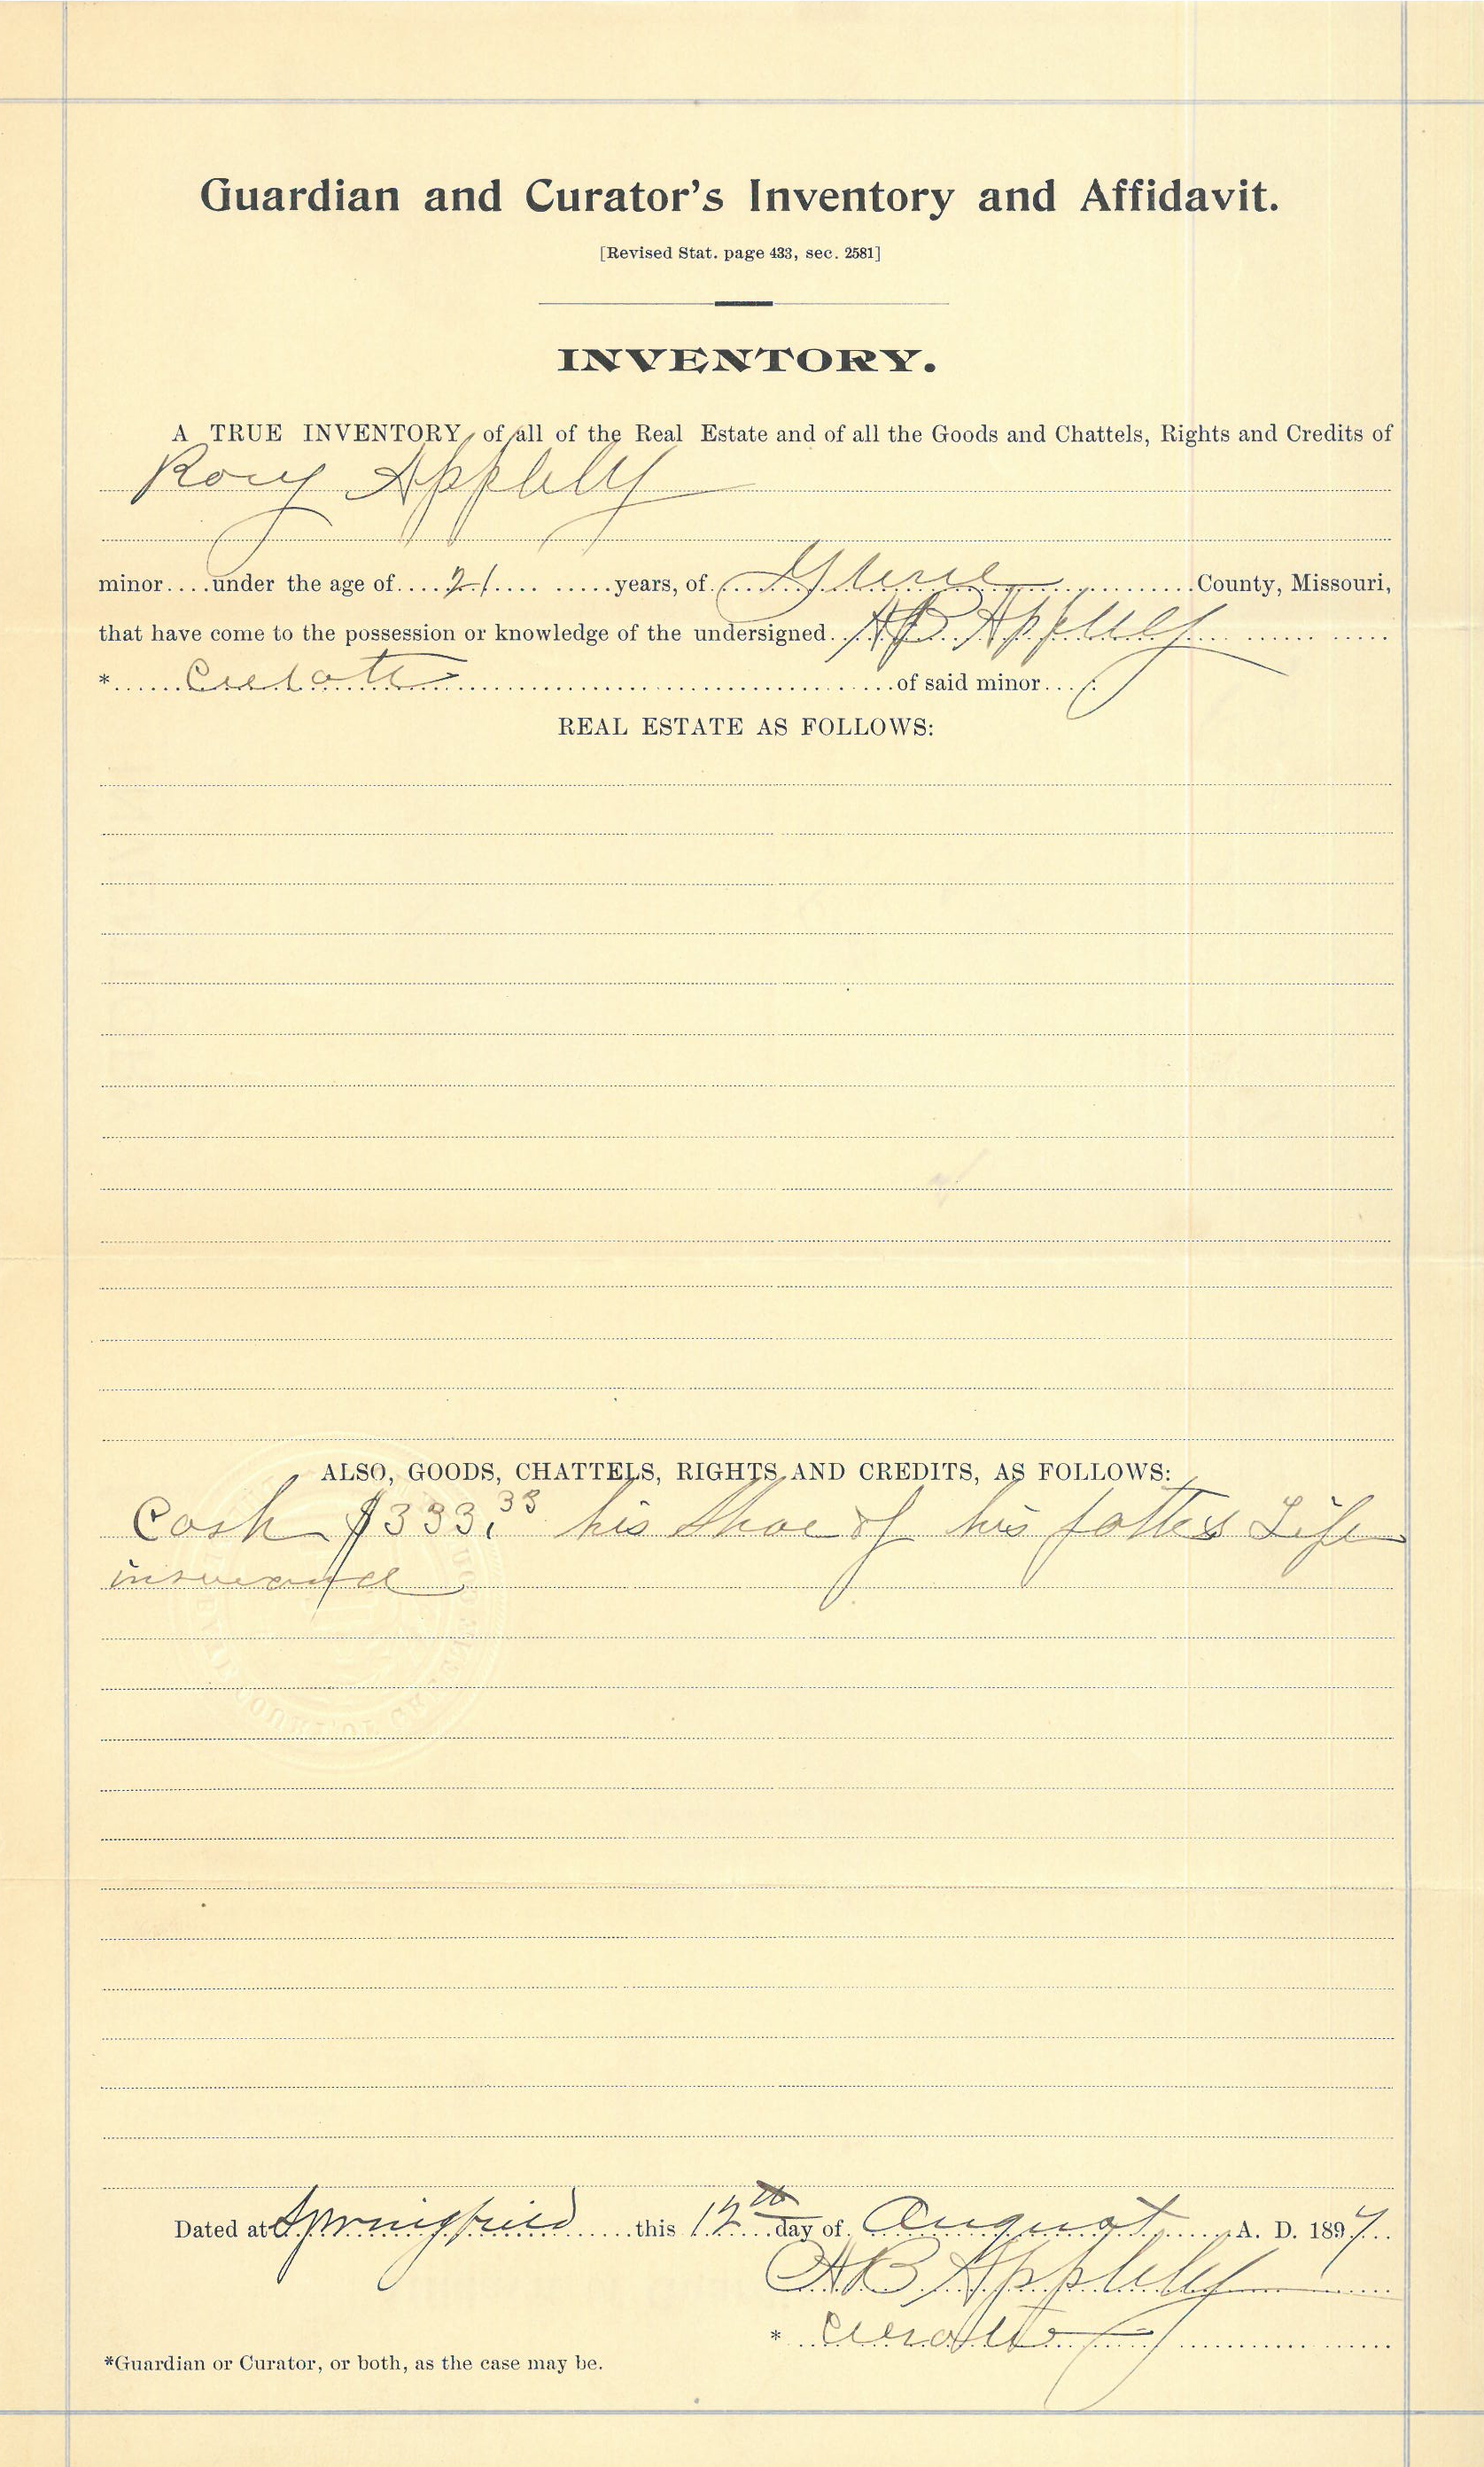 Guardian and Curator's Inventory and Affidavit.
[Revised Stat. page 433, sec. 2581]
INVENTORY.
A TRUE INVENTORY, of all of the Real Estate and of all the Goods and Chattels, Rights and Credits of
Roy Appleby
minor....under the age of....21.... .....years, of Greene County, Missouri,
that have come to the possession or knowledge of the undersigned. A B Appleby
* Curator of said minor....:
REAL ESTATE AS FOLLOWS:
ALSO, GOODS, CHATTELS, RIGHTS AND CREDITS, AS FOLLOWS:
Cash $333.33 his share of his fathers Life
insurance
Dated at Springfield this 12th day of August A. D. 1897
A B Appleby
* Curator
*Guardian or Curator, or both, as the case may be.